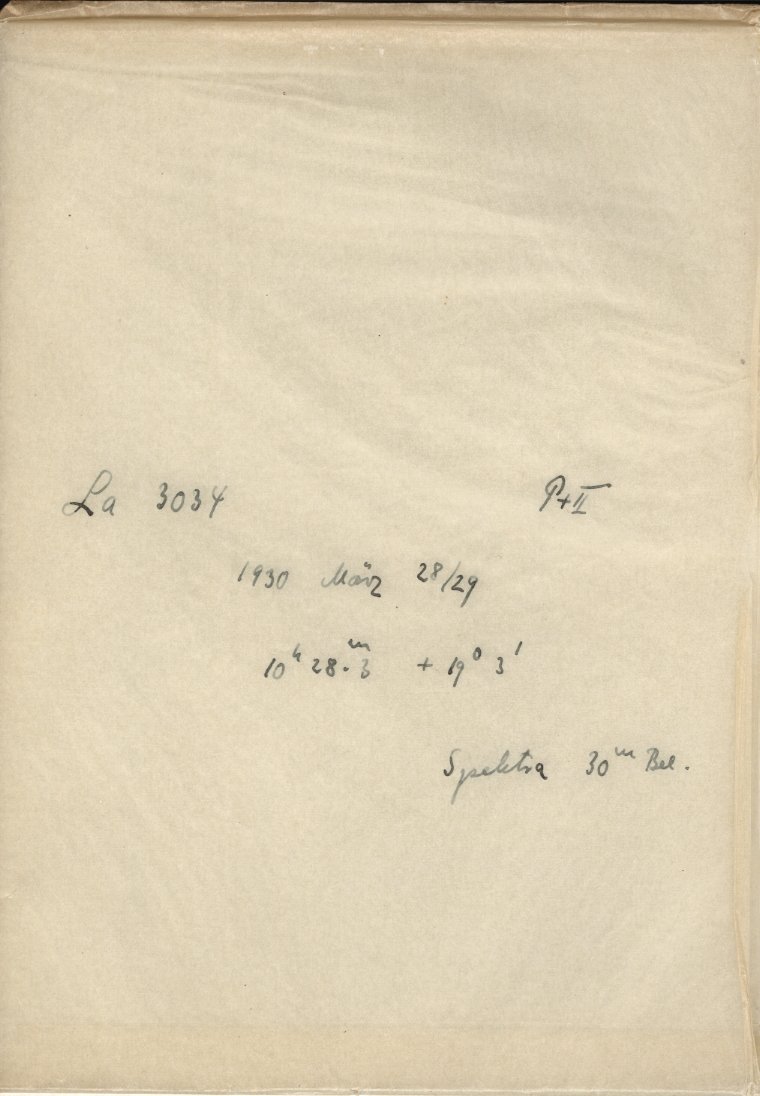 La 3034 P+II
1930 März 28/29
10ʰ 28.ᵐ3 + 19⁰ 3'
Spektra 30ᵐ Bel.